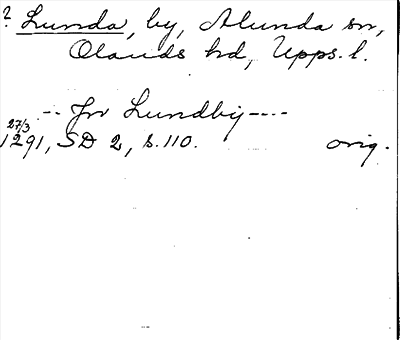 ? Lunda, by, Alunda sn,
Olands hd, Upps. l.
-- jn Lundby ----
27/3
1291, SD 2, s. 110. orig.